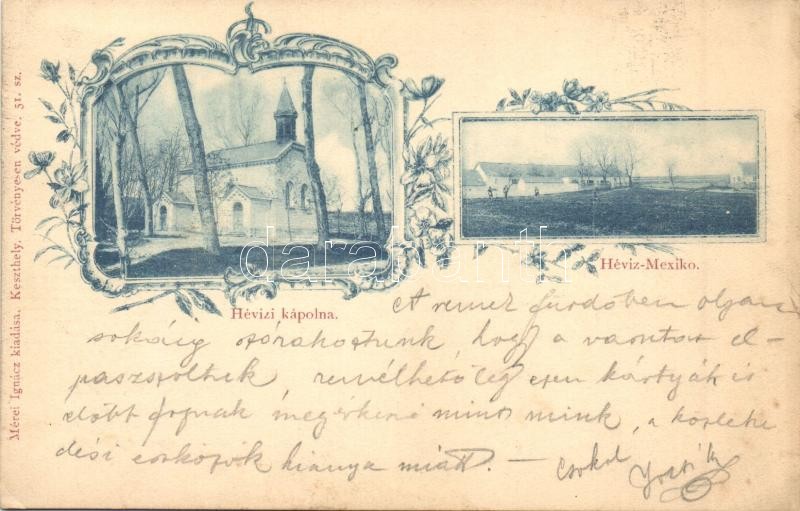 Mérei Ignácz kiadása. Keszthely. Törvényesen védve. 51. sz.
Hévizi kápolna.
Héviz-Mexiko.
darabanth
A remek fürdőben olyan
sokáig szórakoztunk hogy a vonatot el-
paszszoltuk remélhetőleg ezen kártyák is
előbb fognak megérkezni mint mink, a közleke
dési eszközök hiánya miatt. — Csókol